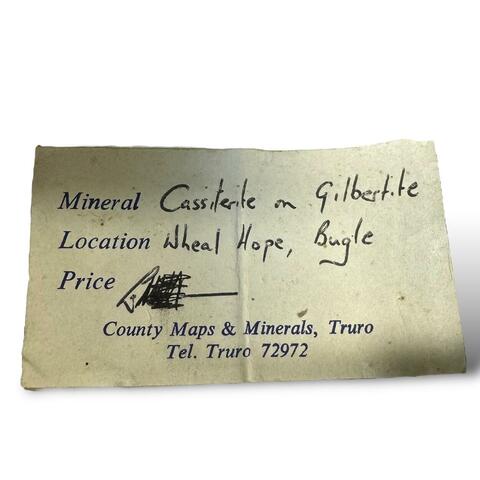 Mineral Cassiterite on Gilbertite
Location Wheal Hope, Bugle
Price
County Maps & Minerals, Truro
Tel. Truro 72972